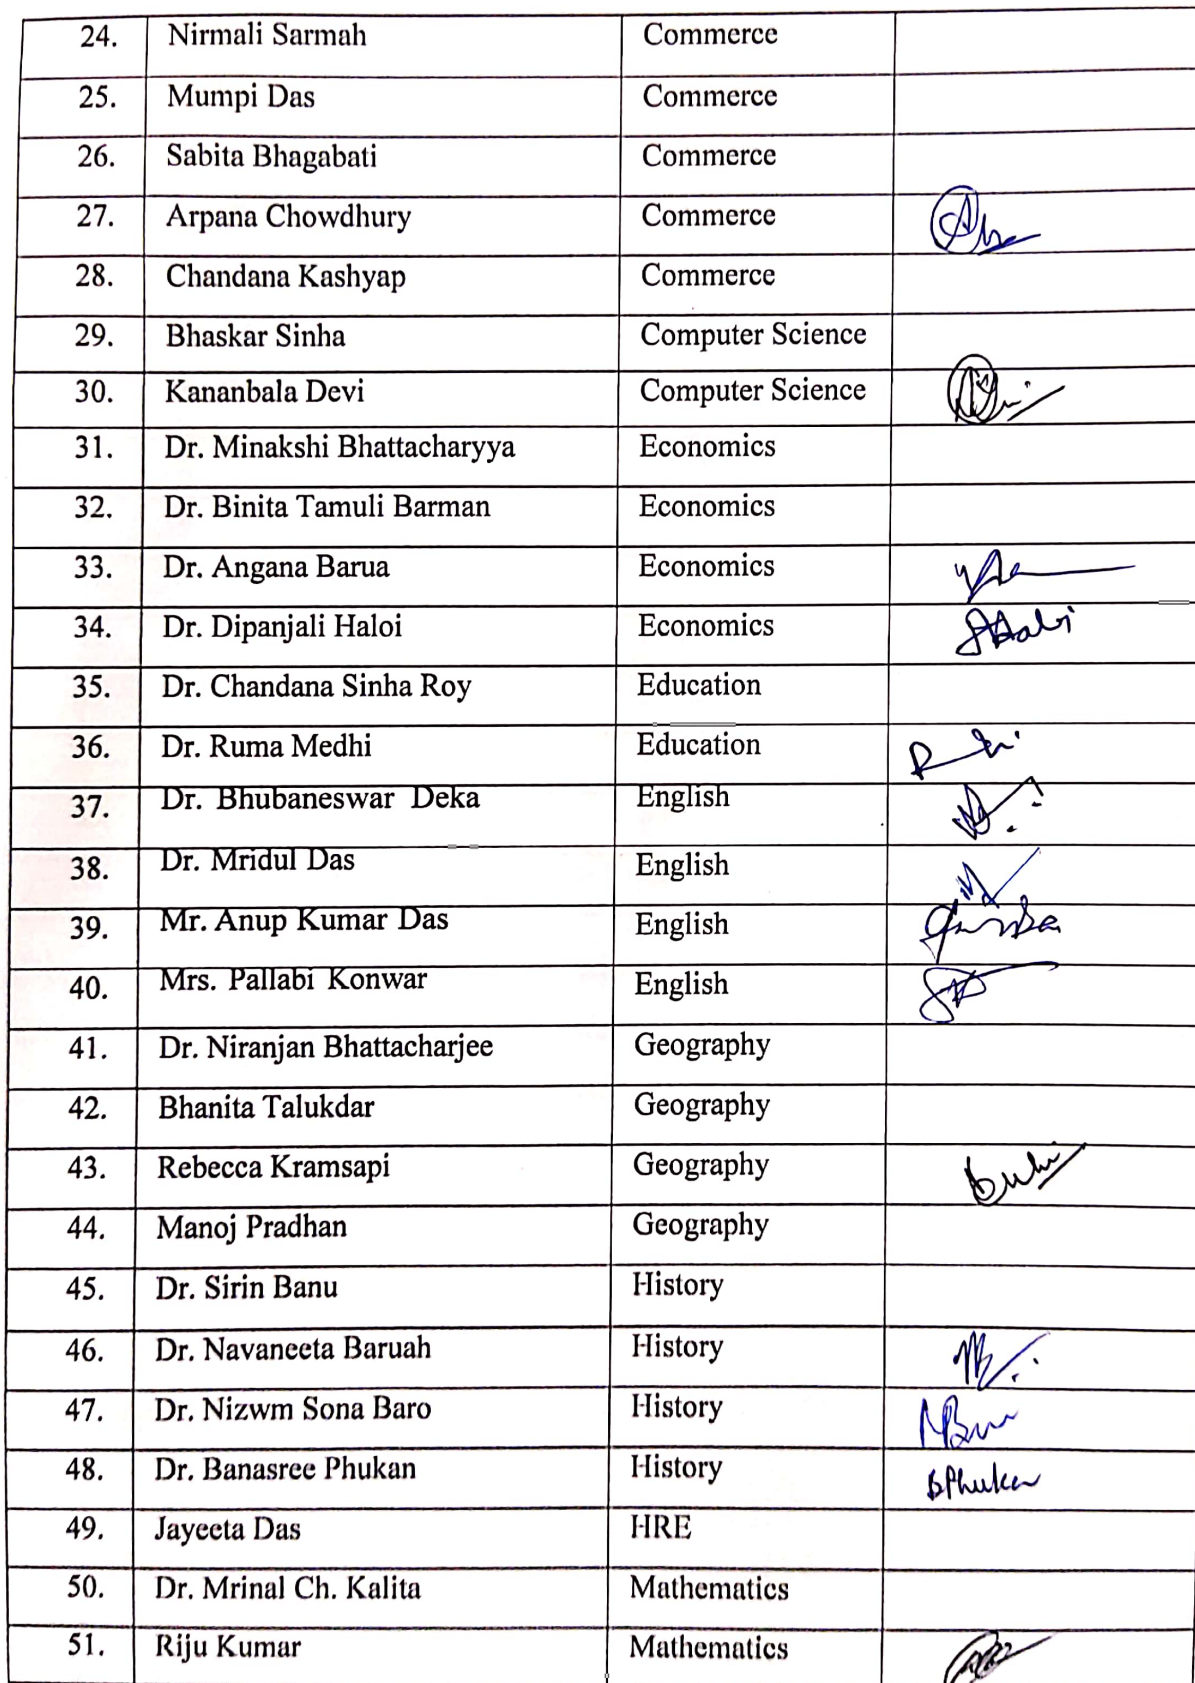 24. Nirmali Sarmah Commerce
25. Mumpi Das Commerce
26. Sabita Bhagabati Commerce
27. Arpana Chowdhury Commerce
28. Chandana Kashyap Commerce
29. Bhaskar Sinha Computer Science
30. Kananbala Devi Computer Science
31. Dr. Minakshi Bhattacharyya Economics
32. Dr. Binita Tamuli Barman Economics
33. Dr. Angana Barua Economics
34. Dr. Dipanjali Haloi Economics
35. Dr. Chandana Sinha Roy Education
36. Dr. Ruma Medhi Education
37. Dr. Bhubaneswar Deka English
38. Dr. Mridul Das English
39. Mr. Anup Kumar Das English
40. Mrs. Pallabi Konwar English
41. Dr. Niranjan Bhattacharjee Geography
42. Bhanita Talukdar Geography
43. Rebecca Kramsapi Geography
44. Manoj Pradhan Geography
45. Dr. Sirin Banu History
46. Dr. Navaneeta Baruah History
47. Dr. Nizwm Sona Baro History
48. Dr. Banasree Phukan History BPhukan
49. Jayeeta Das HRE
50. Dr. Mrinal Ch. Kalita Mathematics
51. Riju Kumar Mathematics